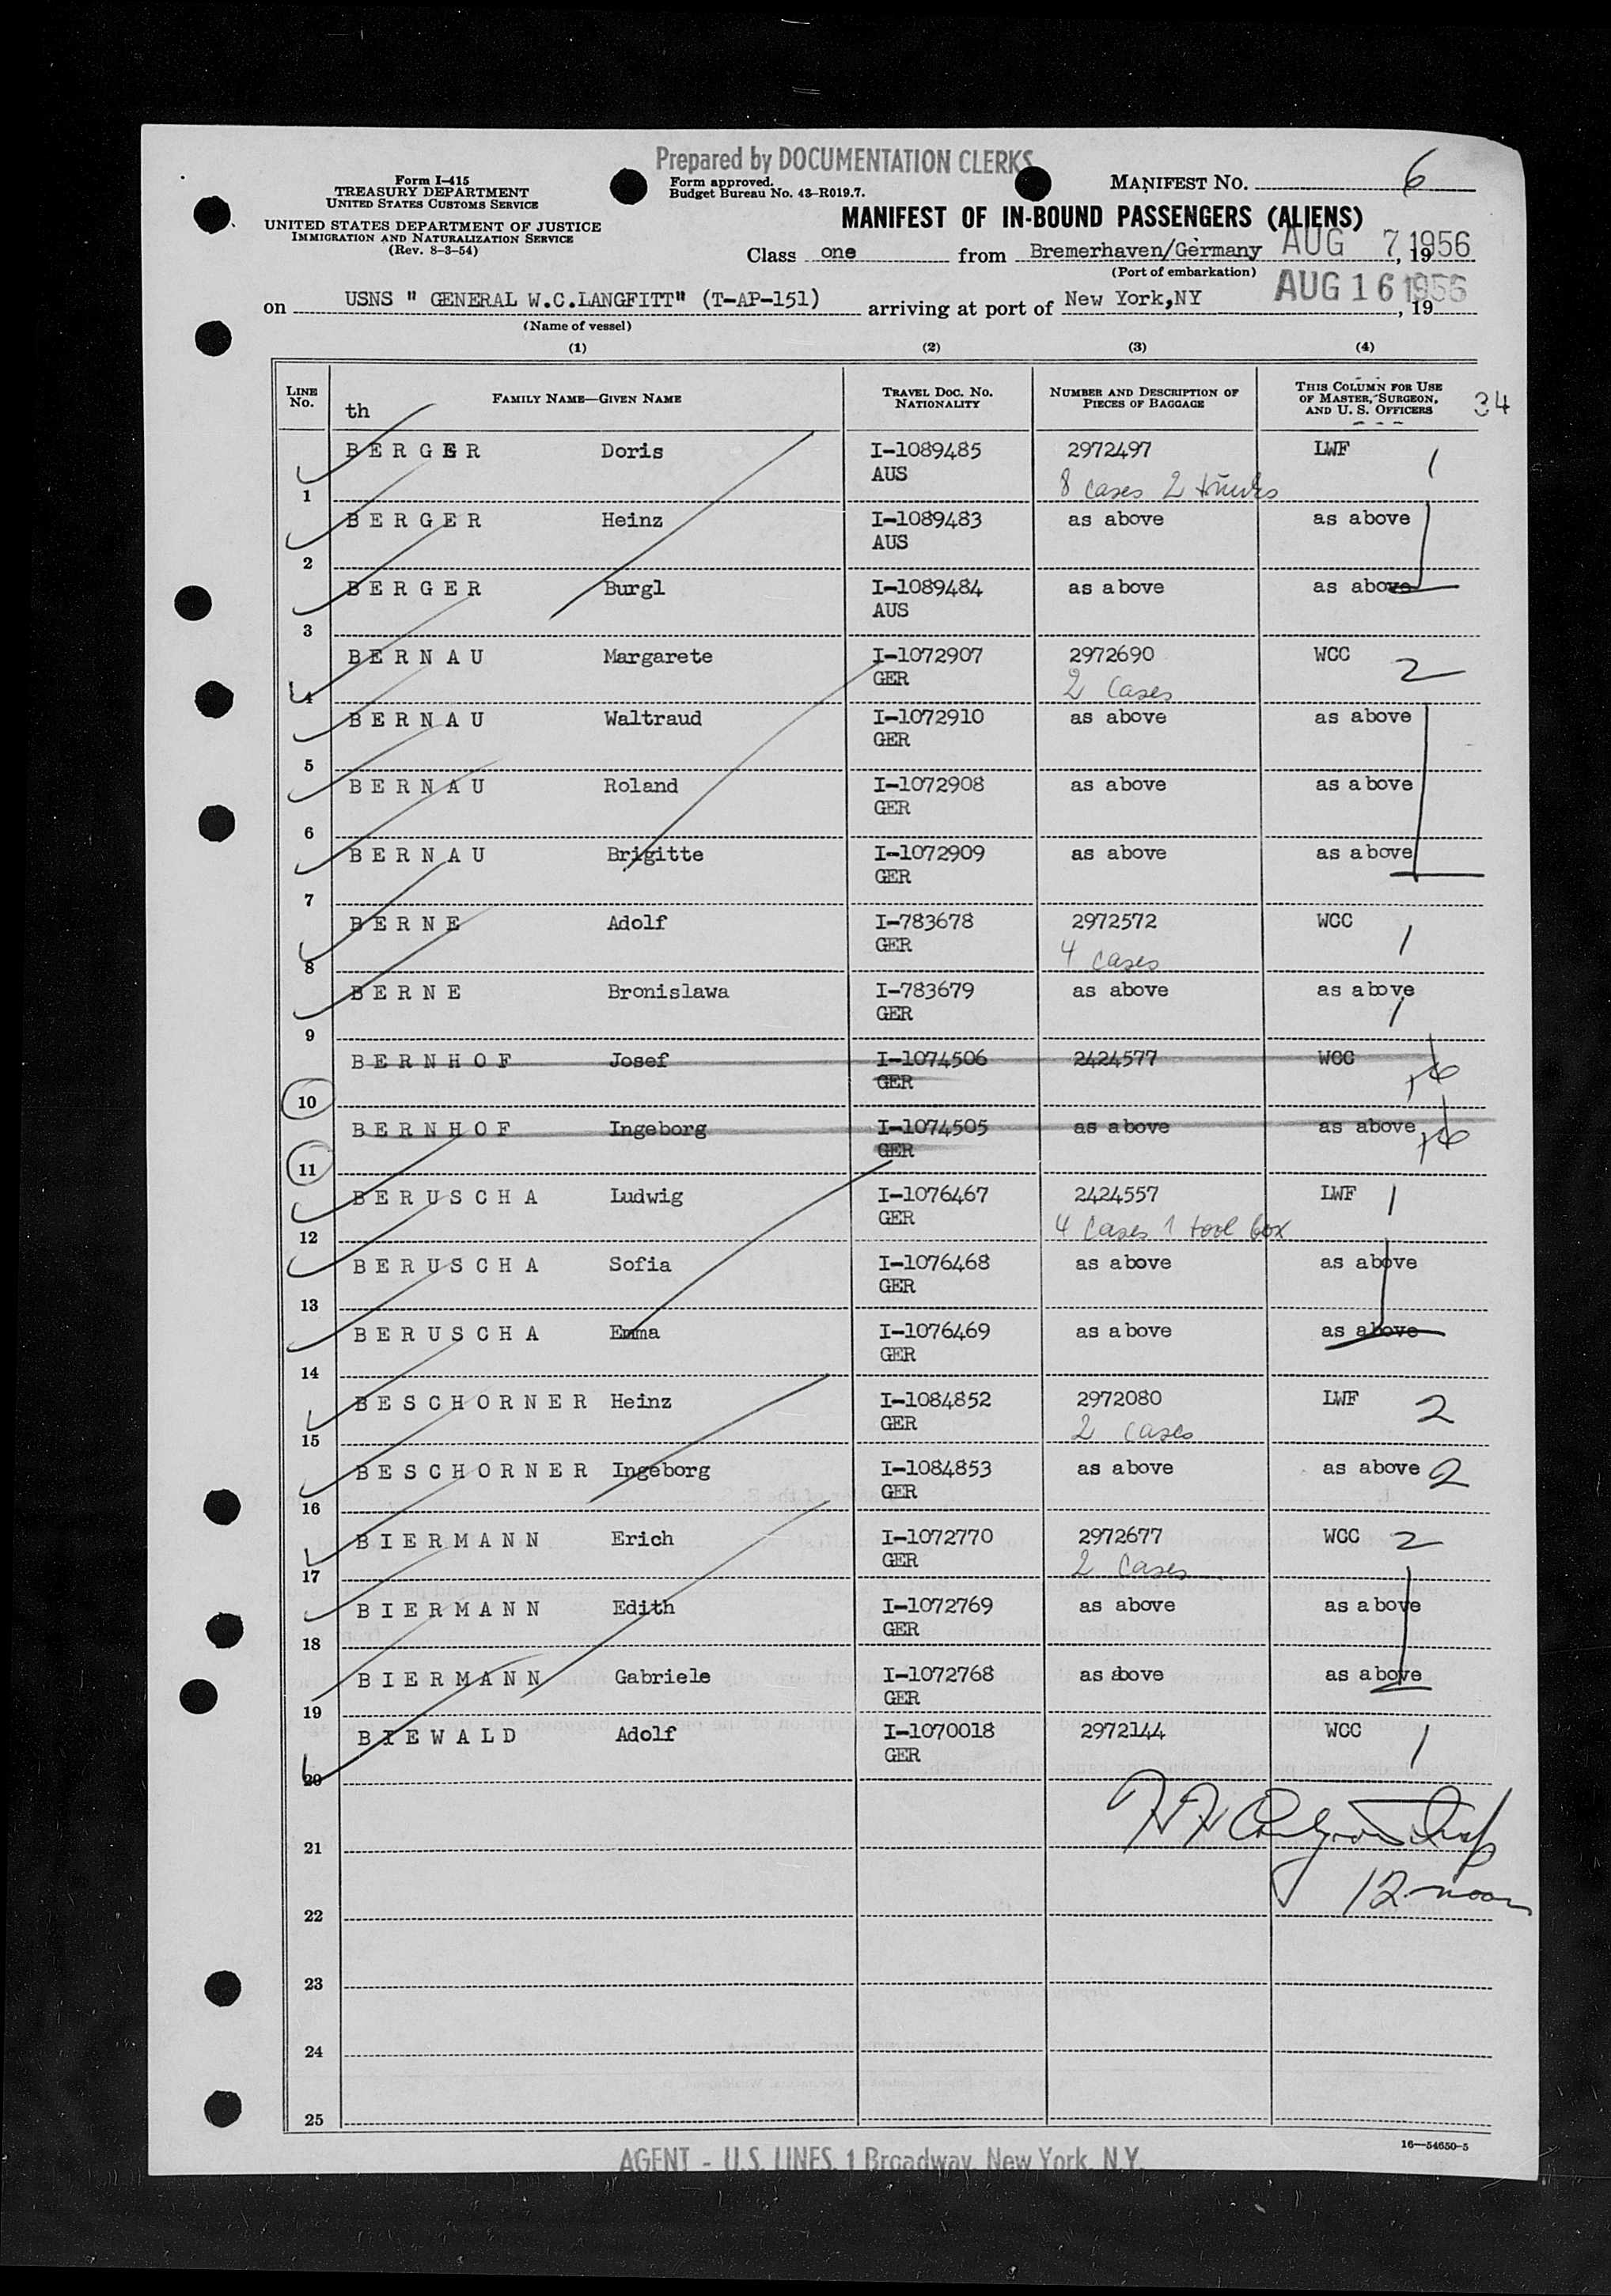 Prepared by DOCUMENTATION CLERKS
Form I-415
TREASURY DEPARTMENT
UNITED STATES CUSTOMS SERVICE
UNITED STATES DEPARTMENT OF JUSTICE
IMMIGRATION AND NATURALIZATION SERVICE
(Rev. 8-3-54)
Form approved.
Budget Bureau No. 43-R019.7.
MANIFEST NO. 6
MANIFEST OF IN-BOUND PASSENGERS (ALIENS)
Class one from Bremerhaven/Germany AUG 7 1956, 19
(Port of embarkation)
on USNS " GENERAL W.C.LANGFITT" (T-AP-151) arriving at port of New York,NY AUG 16 1956, 19
(Name of vessel)
(1) (2) (3) (4)
LINE NO. th FAMILY NAME—GIVEN NAME TRAVEL DOC. NO. NATIONALITY NUMBER AND DESCRIPTION OF PIECES OF BAGGAGE THIS COLUMN FOR USE OF MASTER, SURGEON, AND U. S. OFFICERS 34
BERGER Doris I-1089485 2972497 LWF 1
1 AUS 8 cases 2 trunks
BERGER Heinz I-1089483 as above as above
2 AUS
BERGER Burgl I-1089484 as above as above
3 AUS
BERNAU Margarete I-1072907 2972690 WCC 2
4 GER 2 cases
BERNAU Waltraud I-1072910 as above as above
5 GER
BERNAU Roland I-1072908 as above as above
6 GER
BERNAU Brigitte I-1072909 as above as above
7 GER
BERNE Adolf I-783678 2972572 WCC 1
8 GER 4 cases
BERNE Bronislawa I-783679 as above as above 1
9 GER
BERNHOF Josef I-1074506 2424577 WCC
10 GER
BERNHOF Ingeborg I-1074505 as above as above
11 GER
BERUSCHA Ludwig I-1076467 2424557 LWF 1
12 GER 4 cases 1 tool box
BERUSCHA Sofia I-1076468 as above as above
13 GER
BERUSCHA Emma I-1076469 as above as above
14 GER
BESCHORNER Heinz I-1084852 2972080 LWF 2
15 GER 2 cases
BESCHORNER Ingeborg I-1084853 as above as above 2
16 GER
BIERMANN Erich I-1072770 2972677 WCC 2
17 GER 2 cases
BIERMANN Edith I-1072769 as above as above
18 GER
BIERMANN Gabriele I-1072768 as above as above
19 GER
BIEWALD Adolf I-1070018 2972144 WCC 1
20 GER
21
12 noon
22
23
24
25
16—54650-5
AGENT - U.S. LINES, 1 Broadway, New York, N.Y.